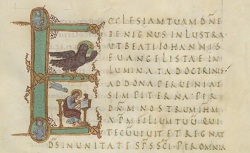 ECCLESIAM TUAM DNE
BENIGNUS INLUSTRA
UT BEATI IOHANNIS
EUANGELISTAE IN
LUMINATA DOCTRINIS
AD DONA PERUENIAT
SEMPITERNA PER
DNM NOSTRUM IHM
XPM FILIUM TUUM QUI
TECUM UIUIT ET REGNAT
DS IN UNITATE SPS SCI PER OMNIA